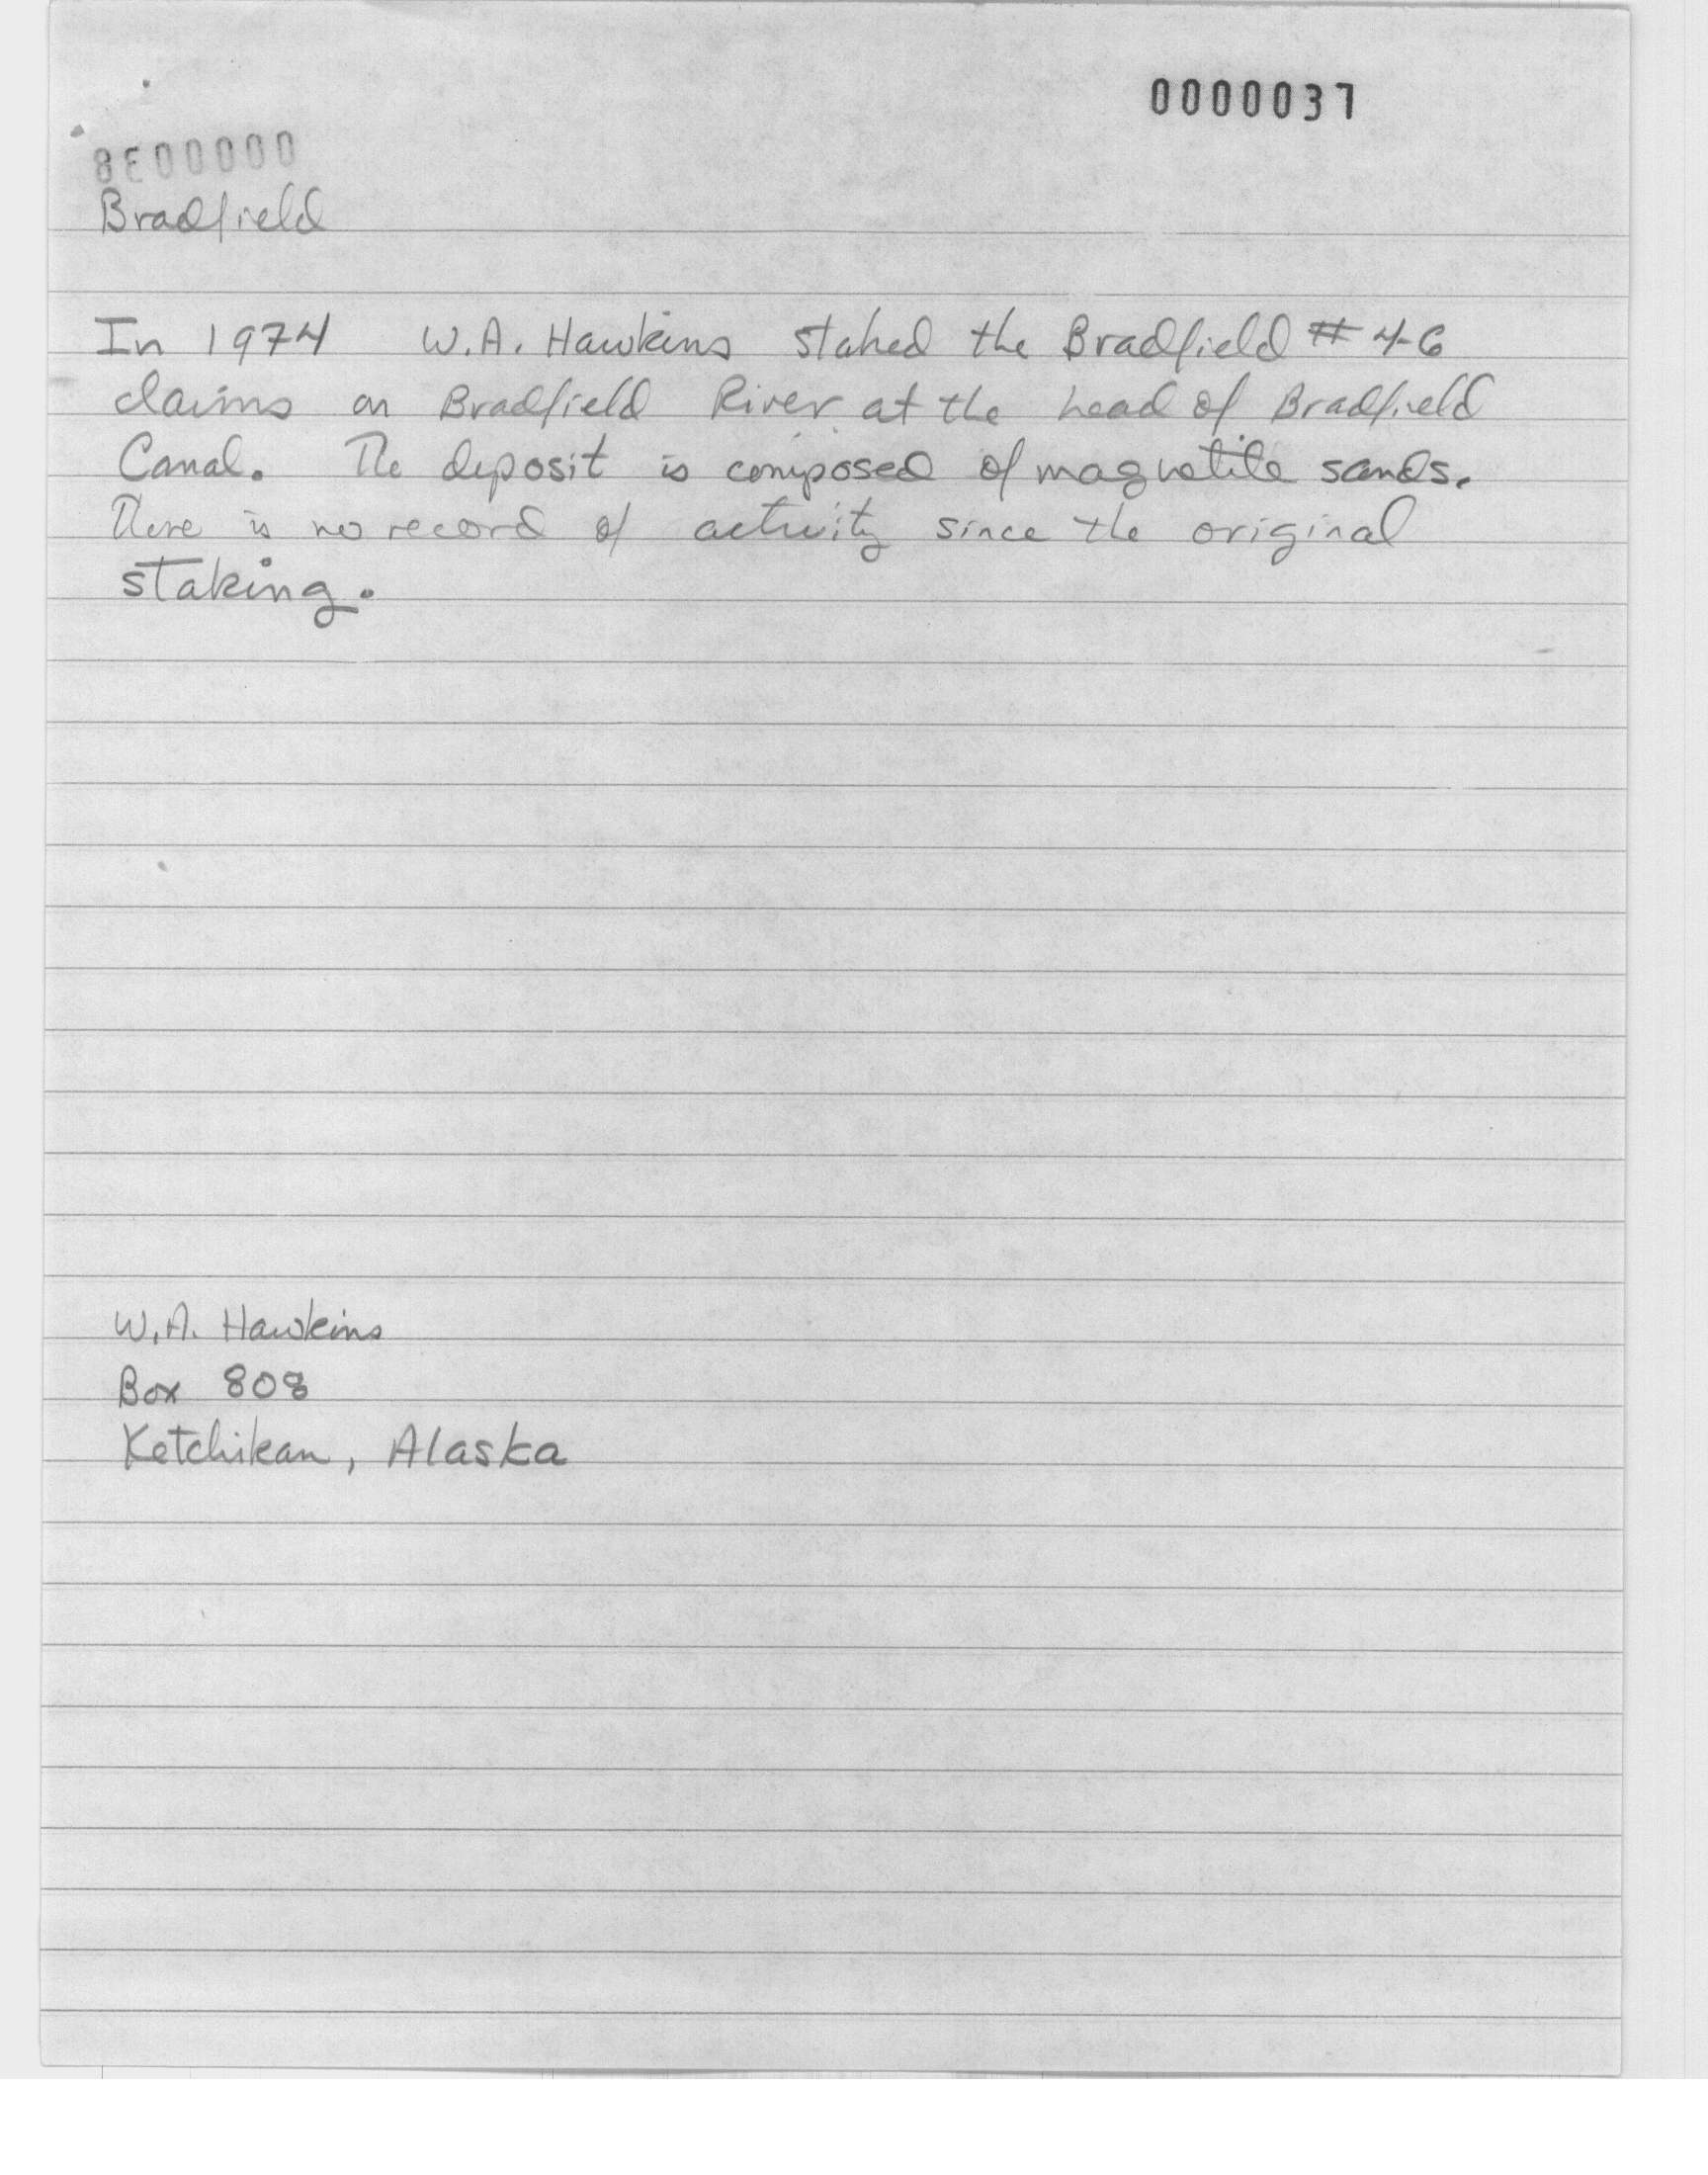 0000037
0000038
Bradfield
In 1974 W.A. Hawkins staked the Bradfield # 4-6
claims on Bradfield River at the head of Bradfield
Canal. The deposit is composed of magnetite sands.
There is no record of activity since the original
staking.
W.A. Hawkins
Box 808
Ketchikan, Alaska